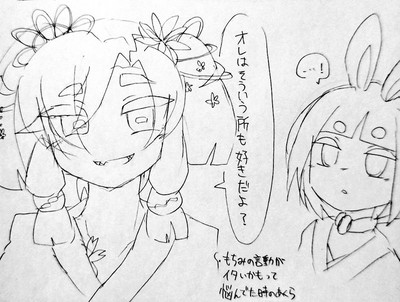 オレはそういう所も好きだよ？
…！
もちみの言動が
イタいかもって
悩んでた時のあくら